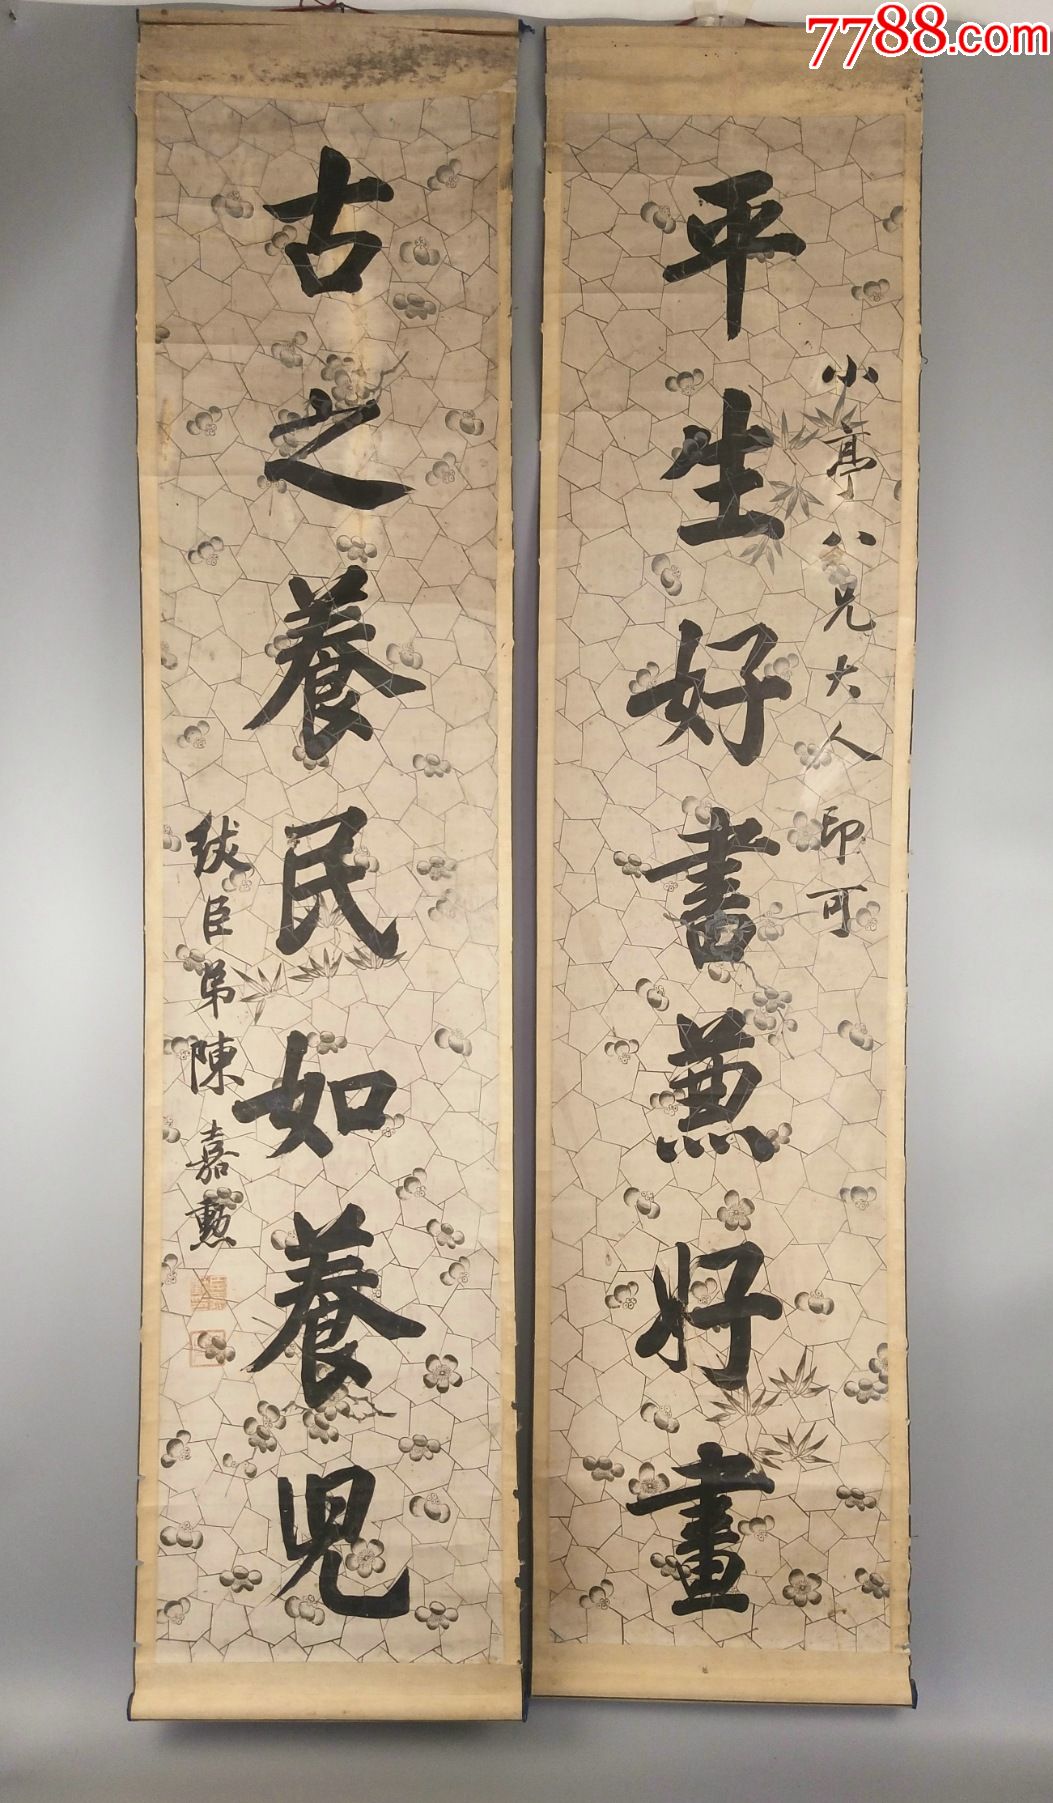 7788.com
小亭八兄大人印可
平生好書兼好畫
古之養民如養兒
紱臣弟陳嘉勳